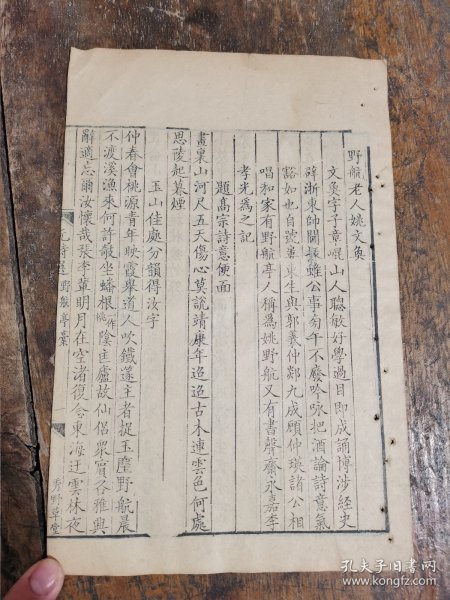 野航老人姚文奐
文奐字子章崐山人聰敏好學過目即成誦博涉經史
辟浙東帥閫掾雖公事旁午不廢吟咏把酒論詩意氣
豁如也自號婁東生與郭羲仲郯九成顧仲瑛諸公相
唱和家有野航亭人稱為姚野航又有書聲齋永嘉李
孝光為之記
題高宗詩意便面
畫裏山河尺五天傷心莫說靖康年迢迢古木連雲色何處
思陵起暮煙
玉山佳處分韻得汝字
仲春會桃源青年映霞舉道人吹鐵篴主者捉玉麈野航晨
不渡溪漁來何許敲坐蟠根一作桃陰匡廬故仙侶眾賓各雅興
辭適忘爾汝懷哉張李輩明月在空渚復念東海迂雲林夜
元詩選 野航亭稾
一
秀野草堂
孔夫子旧书网
www.kongfz.com